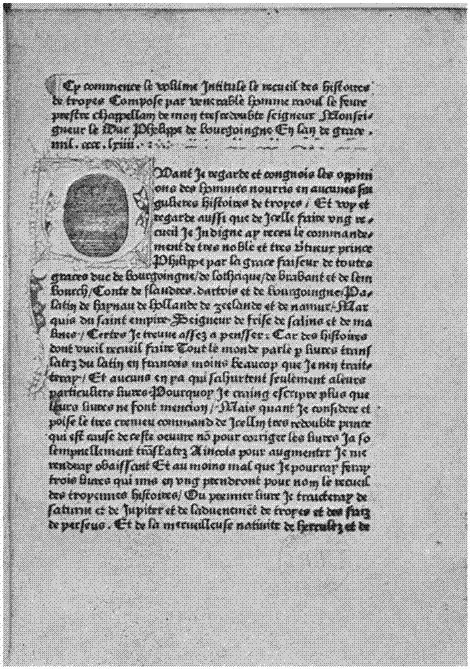 Cy commence le volume Intitule le recueil des histoires
de troyes Compose par venerable homme raoul le feure
prestre chappellan de mon tresredoubte seigneur Monsei-
gneur le Duc Phelippe de bourgoingne En lan de grace .
mil. cccc. lxiiii.
Quant Je regarde et congnois les oppini
ons des hommes nourris en aucunes sin
gulieres histoires de troyes / Et voy et
regarde aussi que de Icelle faire vng re-
cueil Je Indigne ay receu le commande-
ment de tres noble et tres vitueux prince
Phelippe par la grace faiseur de toutes
graces duc de bourgoingne / de lothrique / de brabant et de lem
bourch / Conte de flandres. dartois et de bourgoingne / Pa-
latin de haynau de hollande de zeelande et de namur / Mar
quis du saint empire Seigneur de frise de salins et de ma
lines / Certes Je treuue assez a pensser : Car des histoires
dont vueil recueil faire Tout le monde parle p liures trans
latez du latin en francois moins beaucop que Je nen trait-
teray / Et aucuns en ya qui sahurtent seulement aleurs
particuliers liures Pourquoy Je craing escripre plus que
leurs liures ne font mencion / Mais quant Je considere et
poise le tres cremeu command de Icellui tres redoubte prince
qui est cause de ceste oeuure nō pour corriger les liures Ja so
lempnellement trāslatez Aincois pour augmenter Je me
rendray obaissant Et au moins mal que Je pourray feray
trois liures qui mis en vng prendront pour nom le recueil
des troyennes histoires / Ou premier liure Je traicteray de
saturne et de Jupiter et de laduenement de troyes et des faiz
de perseus . Et de la merueilleuse natiuite de hercules et de